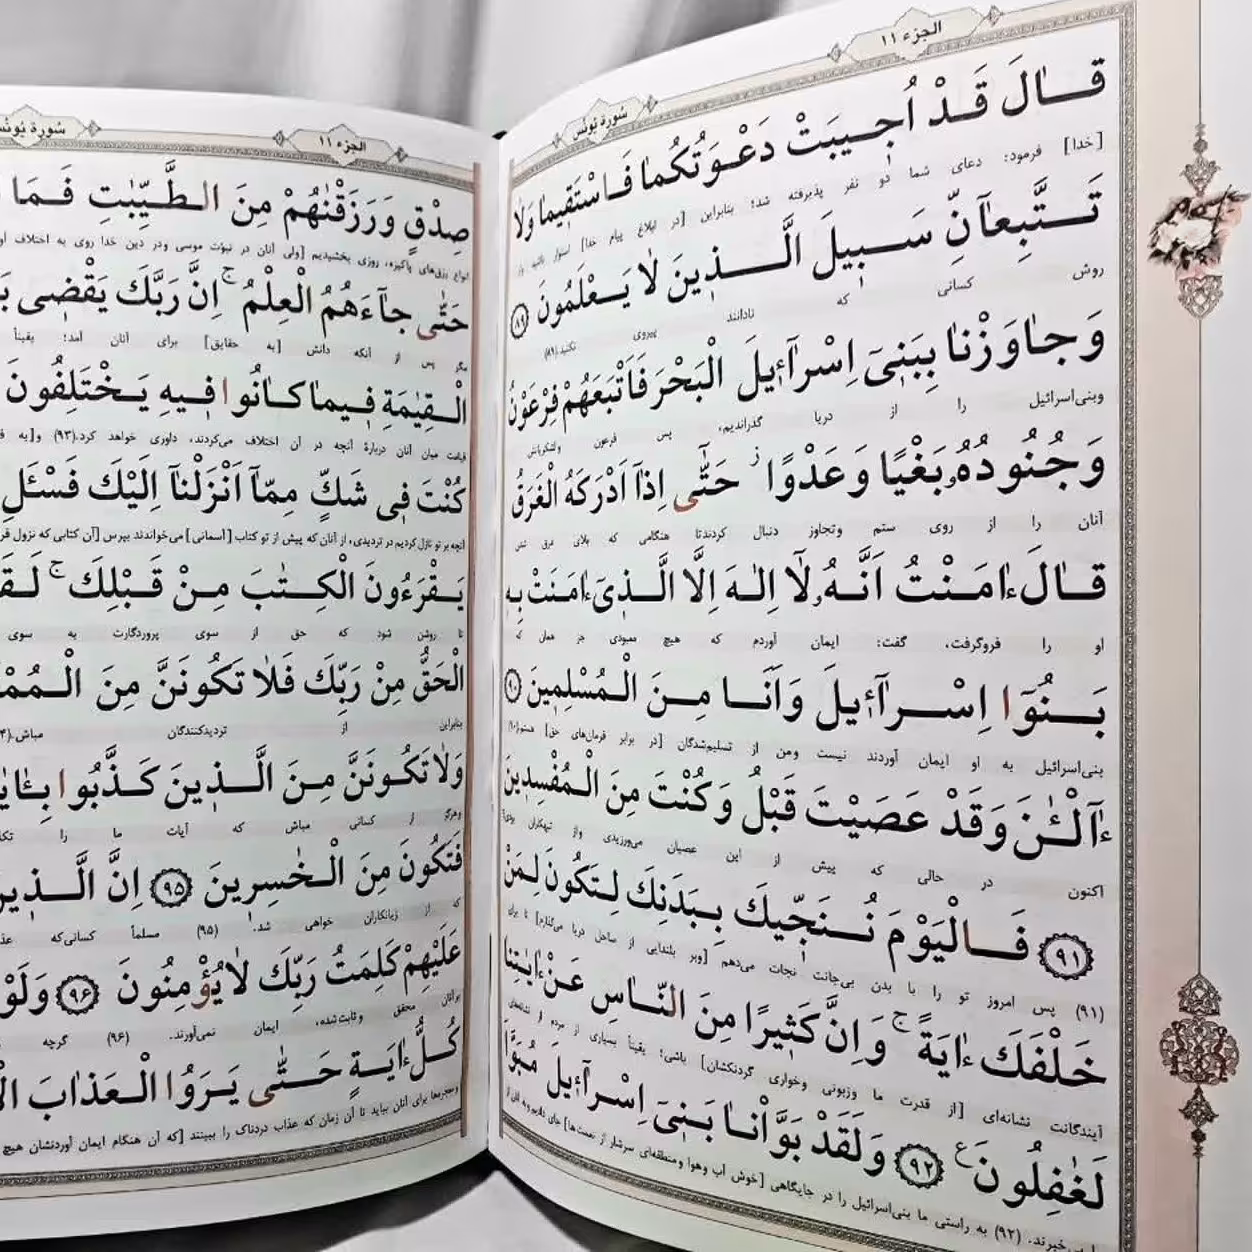 الجزء ١١
سُورة يُونُس
قالَ قَدْ اُجيبَتْ دَعْوَتُكُما فَاسْتَقيما وَلا
[خدا] فرمود: دعای شما دو نفر پذیرفته شد؛ بنابراین [در ابلاغ پیام خدا] استوار باشید و از
تَتَّبِعآنِّ سَبيلَ الَّذينَ لا يَعْلَمُونَ ٨٩
روش کسانی که نادانند پیروی نکنید.(۸۹)
وَجاوَزْنا بِبَنى اِسْرآءيلَ الْبَحْرَ فَاَتْبَعَهُمْ فِرْعَوْنُ
وبنی‌اسرائیل را از دریا گذراندیم، پس فرعون ولشکریانش
وَجُنُودُهُ بَغْيًا وَعَدْوًا ز حَتّى اِذآ اَدْرَكَهُ الْغَرَقُ
آنان را از روی ستم وتجاوز دنبال کردندتا هنگامی که بلای غرق شدن
قالَ ءامَنْتُ اَنَّهُ لآ اِلهَ اِلَّا الَّذى ءامَنَتْ بِهِ
او را فروگرفت، گفت: ایمان آوردم که هیچ معبودی جز همان که
بَنُوٓا اِسْرآءيلَ وَاَنَا مِنَ الْمُسْلِمينَ ٩٠
بنی‌اسرائیل به او ایمان آوردند نیست ومن از تسلیم‌شدگان [در برابر فرمان‌های حق] هستم.(۹۰)
ءآلْـٰٔنَ وَقَدْ عَصَيْتَ قَبْلُ وَكُنْتَ مِنَ الْمُفْسِدينَ
اکنون در حالی که پیش از این عصیان می‌ورزیدی واز تبهکاران بودی؟
٩١ فَالْيَوْمَ نُنَجّيكَ بِبَدَنِكَ لِتَكُونَ لِمَنْ
(۹۱) پس امروز تو را با بدن بی‌جانت نجات می‌دهم [وبر بلندایی از ساحل دریا می‌گذارم] تا برای
خَلْفَكَ ءايَةً ج وَاِنَّ كَثيرًا مِنَ النّاسِ عَنْ ءايٰتِنا
آیندگانت نشانه‌ای [از قدرت ما وزبونی وخواری گردنکشان] باشی؛ یقیناً بسیاری از مردم از نشانه‌های
لَغٰفِلُونَ ع ٩٢ وَلَقَدْ بَوَّاْنا بَنى اِسْرآءيلَ مُبَوَّاَ
بی‌خبرند. (۹۲) به راستی ما بنی‌اسرائیل را در جایگاهی [خوش آب وهوا ومنطقه‌ای سرشار از نعمت‌ها] جای دادیم و به آنان از
الجزء ١١
سُورة يُونُس
صِدْقٍ وَرَزَقْنٰهُمْ مِنَ الطَّيِّبٰتِ فَمَا
انواع رزق‌های پاکیزه، روزی بخشیدیم [ولی آنان در نبوّت موسی ودر دین خدا روی به اختلاف
حَتّى جآءَهُمُ الْعِلْمُ ج اِنَّ رَبَّكَ يَقْضى
مگر پس از آنکه دانش [به حقایق] برای آنان آمد؛ یقیناً
الْقِيٰمَةِ فيما كانُوا فيهِ يَخْتَلِفُونَ
قیامت میان آنان دربارۀ آنچه در آن اختلاف می‌کردند، داوری خواهد کرد.(۹۳)
كُنْتَ فى شَكٍّ مِمّآ اَنْزَلْنآ اِلَيْكَ فَسْـَٔلِ
آنچه بر تو نازل کردیم در تردیدی، از آنان که پیش از تو کتاب [آسمانی] می‌خواندند بپرس [آن کتابی که نزول
يَقْرَءُونَ الْكِتٰبَ مِنْ قَبْلِكَ ج لَقَ
تا روشن شود که حق از سوی پروردگارت به سوی
الْحَقُّ مِنْ رَبِّكَ فَلا تَكُونَنَّ مِنَ الْمُمْ
بنابراین از تردیدکنندگان مباش.
وَلا تَكُونَنَّ مِنَ الَّذينَ كَذَّبُوا بِـٔاي
وهرگز از کسانی مباش که آیات ما را تک
فَتَكُونَ مِنَ الْخٰسِرينَ ٩٥ اِنَّ الَّذينَ
که از زیانکاران خواهی شد. (۹۵) مسلماً کسانی‌که
عَلَيْهِمْ كَلِمَتُ رَبِّكَ لا يُؤْمِنُونَ ٩٦ وَلَوْ
برآنان محقق وثابت‌شده، ایمان نمی‌آورند. (۹۶) گرچه
كُلُّ ءايَةٍ حَتّى يَرَوُا الْعَذابَ
ومعجزه‌ها برای آنان بیاید تا آن زمان که عذاب دردناک را ببینند [که آن هنگام ایمان آوردنشان هیچ